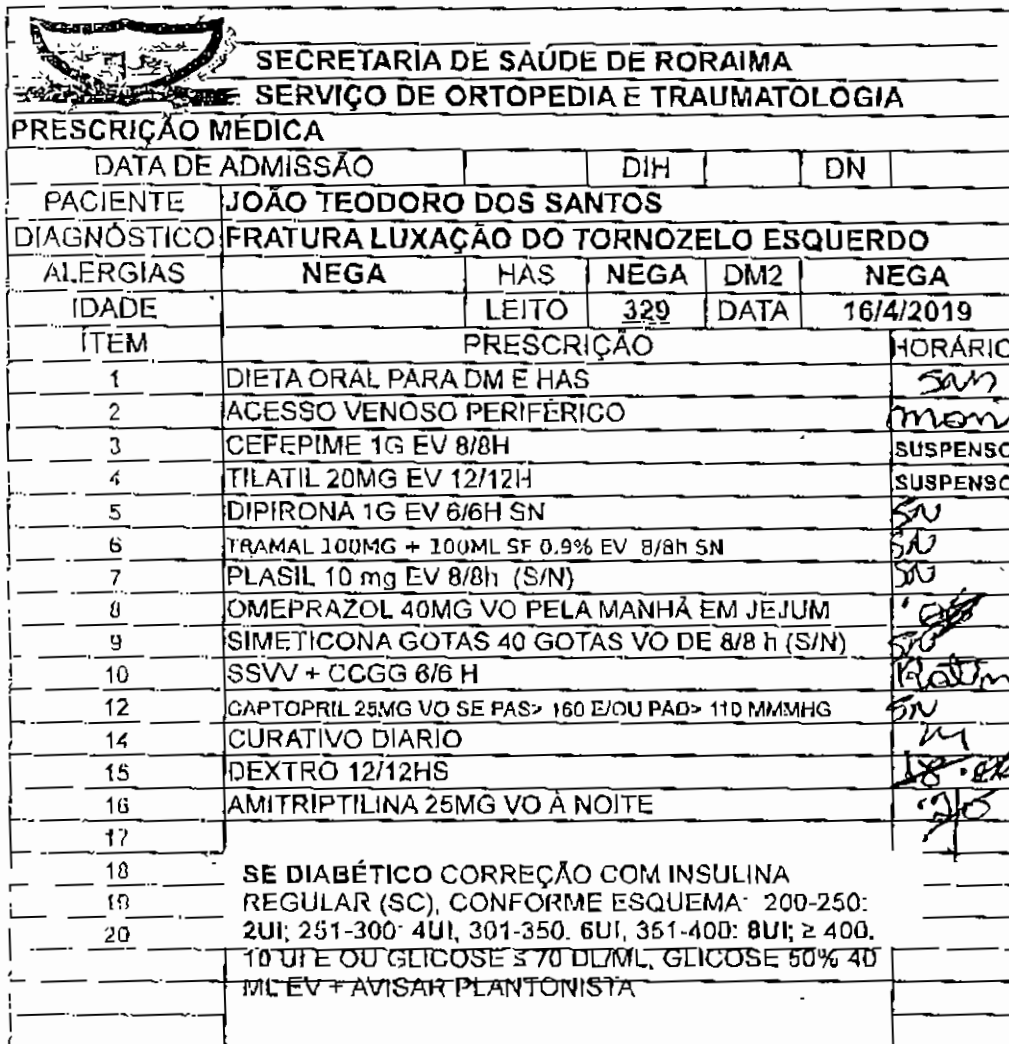 SECRETARIA DE SAÚDE DE RORAIMA
SERVIÇO DE ORTOPEDIA E TRAUMATOLOGIA
PRESCRIÇÃO MÉDICA
DATA DE ADMISSÃO DIH DN
PACIENTE JOÃO TEODORO DOS SANTOS
DIAGNÓSTICO FRATURA LUXAÇÃO DO TORNOZELO ESQUERDO
ALERGIAS NEGA HAS NEGA DM2 NEGA
IDADE LEITO 329 DATA 16/4/2019
ÍTEM PRESCRIÇÃO HORÁRIO
1 DIETA ORAL PARA DM E HAS
2 ACESSO VENOSO PERIFÉRICO
3 CEFEPIME 1G EV 8/8H SUSPENSO
4 TILATIL 20MG EV 12/12H SUSPENSO
5 DIPIRONA 1G EV 6/6H SN SN
6 TRAMAL 100MG + 100ML SF 0.9% EV 8/8h SN SN
7 PLASIL 10 mg EV 8/8h (S/N) SN
8 OMEPRAZOL 40MG VO PELA MANHÃ EM JEJUM
9 SIMETICONA GOTAS 40 GOTAS VO DE 8/8 h (S/N) SN
10 SSVV + CCGG 6/6 H
12 CAPTOPRIL 25MG VO SE PAS> 160 E/OU PAD> 110 MMMHG SN
14 CURATIVO DIARIO
15 DEXTRO 12/12HS 18
16 AMITRIPTILINA 25MG VO À NOITE
17
18 SE DIABÉTICO CORREÇÃO COM INSULINA
19 REGULAR (SC), CONFORME ESQUEMA: 200-250:
20 2UI; 251-300: 4UI, 301-350. 6UI, 351-400: 8UI; ≥ 400.
10 UI E OU GLICOSE ≤ 70 DL/ML, GLICOSE 50% 40
ML EV + AVISAR PLANTONISTA